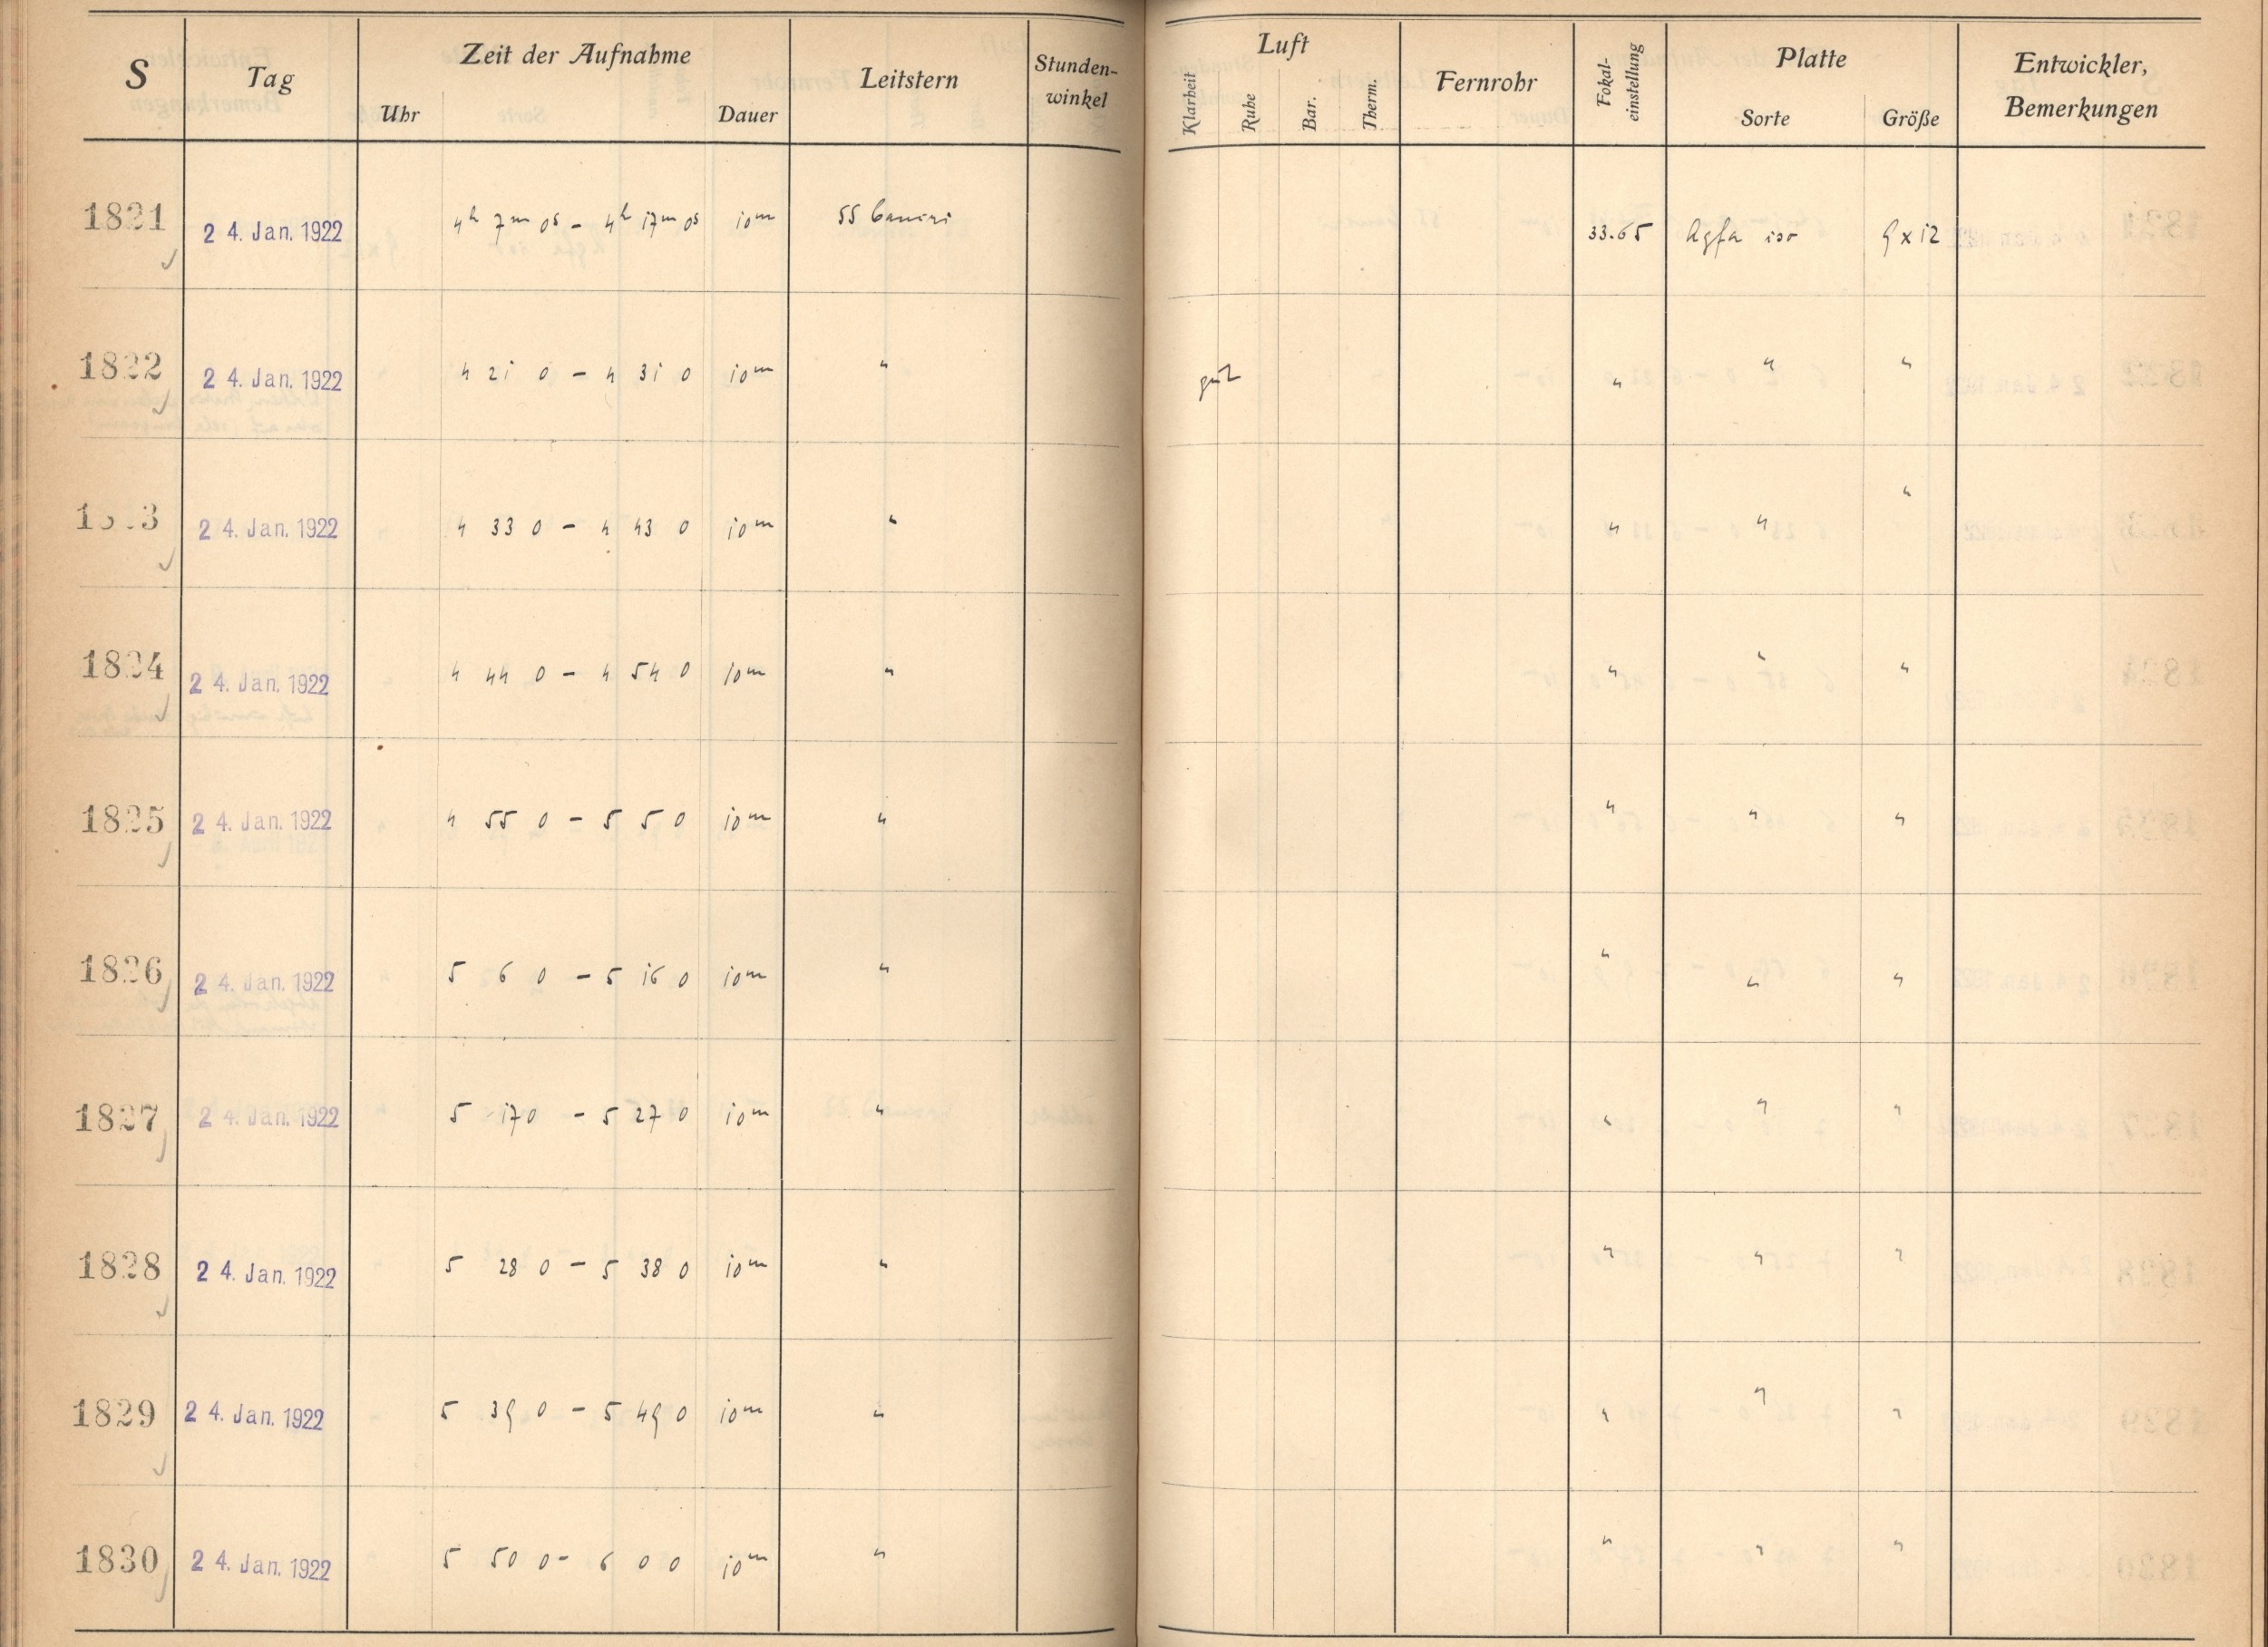 S Tag Zeit der Aufnahme Uhr Dauer Leitstern Stunden-winkel Luft Klarheit Ruhe Bar. Therm. Fernrohr Fokal-einstellung Platte Sorte Größe Entwickler, Bemerkungen
1821 24. Jan. 1922 4h 7m 0s - 4h 17m 0s 10m 55 Cancri 33.65 Agfa iso 9x12
1822 24. Jan. 1922 4 21 0 - 4 31 0 10m " gut " " "
1823 24. Jan. 1922 4 33 0 - 4 43 0 10m " " " "
1824 24. Jan. 1922 4 44 0 - 4 54 0 10m " " " "
1825 24. Jan. 1922 4 55 0 - 5 5 0 10m " " " "
1826 24. Jan. 1922 5 6 0 - 5 16 0 10m " " " "
1827 24. Jan. 1922 5 17 0 - 5 27 0 10m " " " "
1828 24. Jan. 1922 5 28 0 - 5 38 0 10m " " " "
1829 24. Jan. 1922 5 39 0 - 5 49 0 10m " " " "
1830 24. Jan. 1922 5 50 0 - 6 0 0 10m " " " "